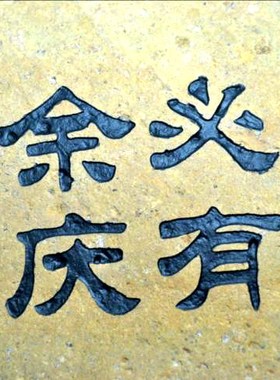 必有
余庆